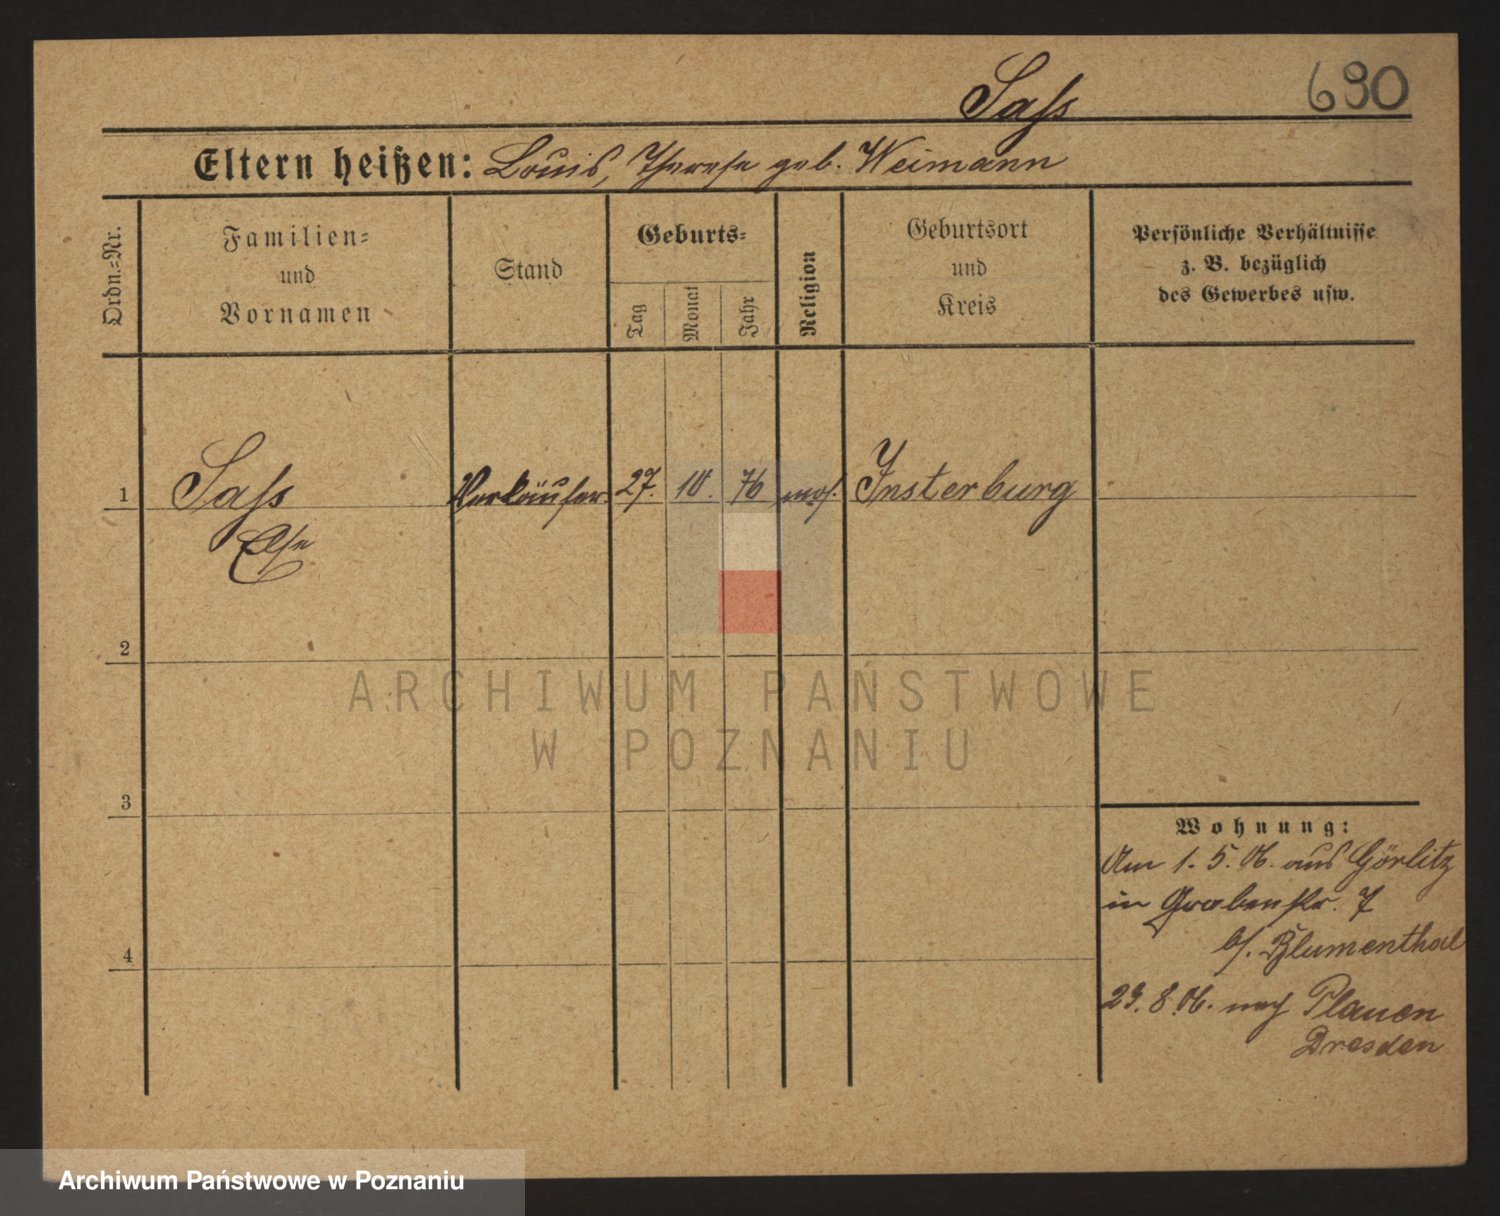 Saß 690
Eltern heißen: Louis, Therese geb. Weimann
Ordn.-Nr.
Familien-
und
Vornamen
Stand
Geburts-
Tag
Monat
Jahr
Religion
Geburtsort
und
Kreis
Persönliche Verhältnisse
z. B. bezüglich
des Gewerbes usw.
1 Saß Verkäufer. 27. 10. 76 mos. Insterburg
Else
2
ARCHIWUM PAŃSTWOWE
W POZNANIU
3
Wohnung:
Am 1. 5. 06. aus Görlitz
in Grabenstr. 7
b/. Blumenthal
4
29. 8. 06. nach Plauen
Dresden
Archiwum Państwowe w Poznaniu